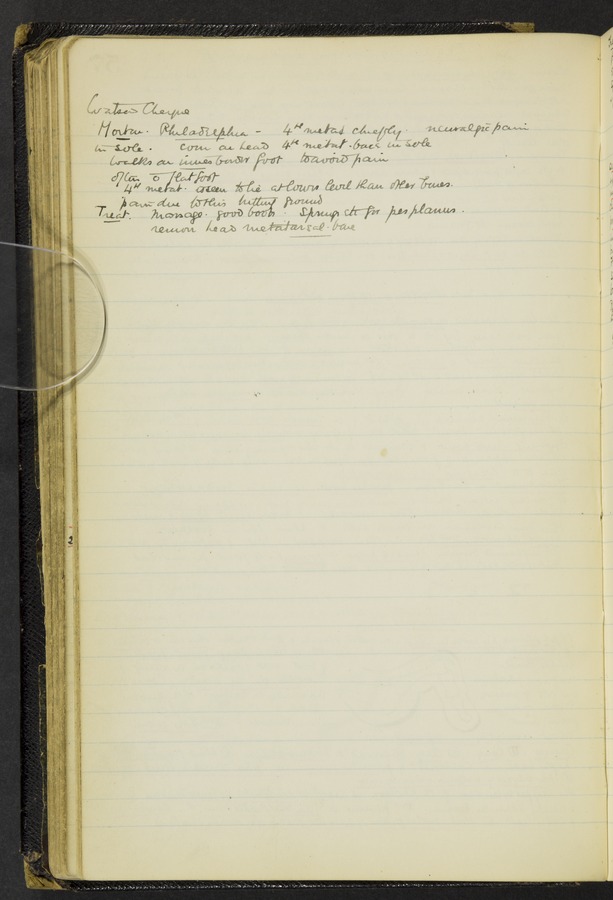 Watson Cheyne
Morton. Philadelphia - 4th metat chiefly. neuralgic pain
in sole. corn on head 4th metat. bone in sole
walks on inner border foot to avoid pain
often c̄ flat foot
4th metat. seen to lie at lower level than other bones.
pain due to this hitting ground
Treat. Massage. good boots. Springs etc for pes planus.
remove head metatarsal bone
2